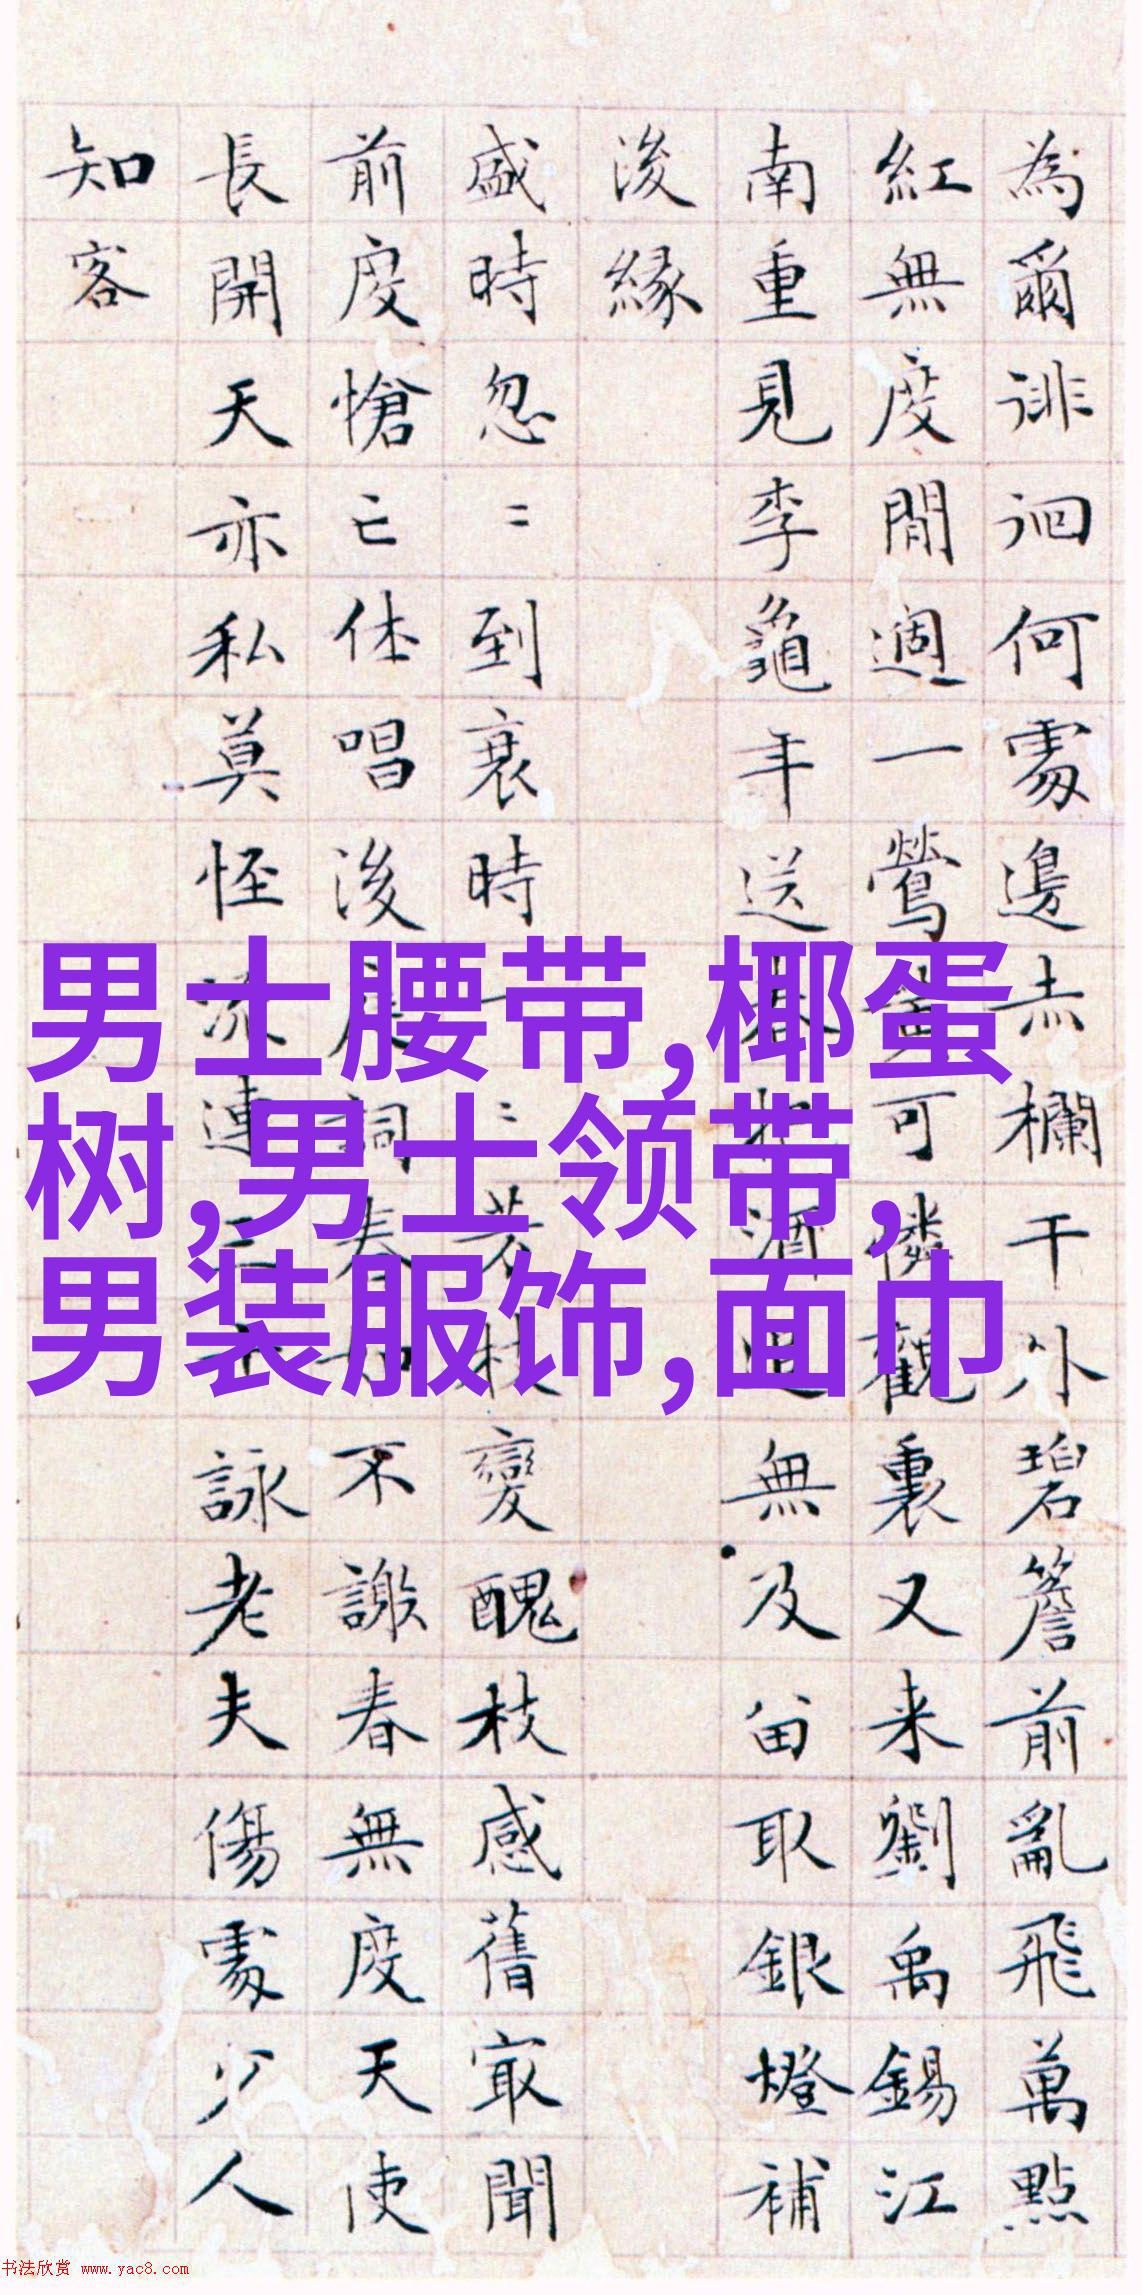 為爾徘徊何處邊赤欄干外碧簷前亂飛萬點
紅無度閒週一鶯可憐觀裏又来劉禹錫江
南重見李龜年送春酒追無及留取銀燈補
後緣
盛時忽〻到衰時一〻芳枝變醜枝感舊最聞
前度愴亡休唱後庭詞春不謝春無度天使
長開天亦私莫怪流連三詠老夫傷處少人
知客
男士腰带,椰蛋
树,男士领带,
男装服饰,面巾
书法欣赏 www.yac8.com